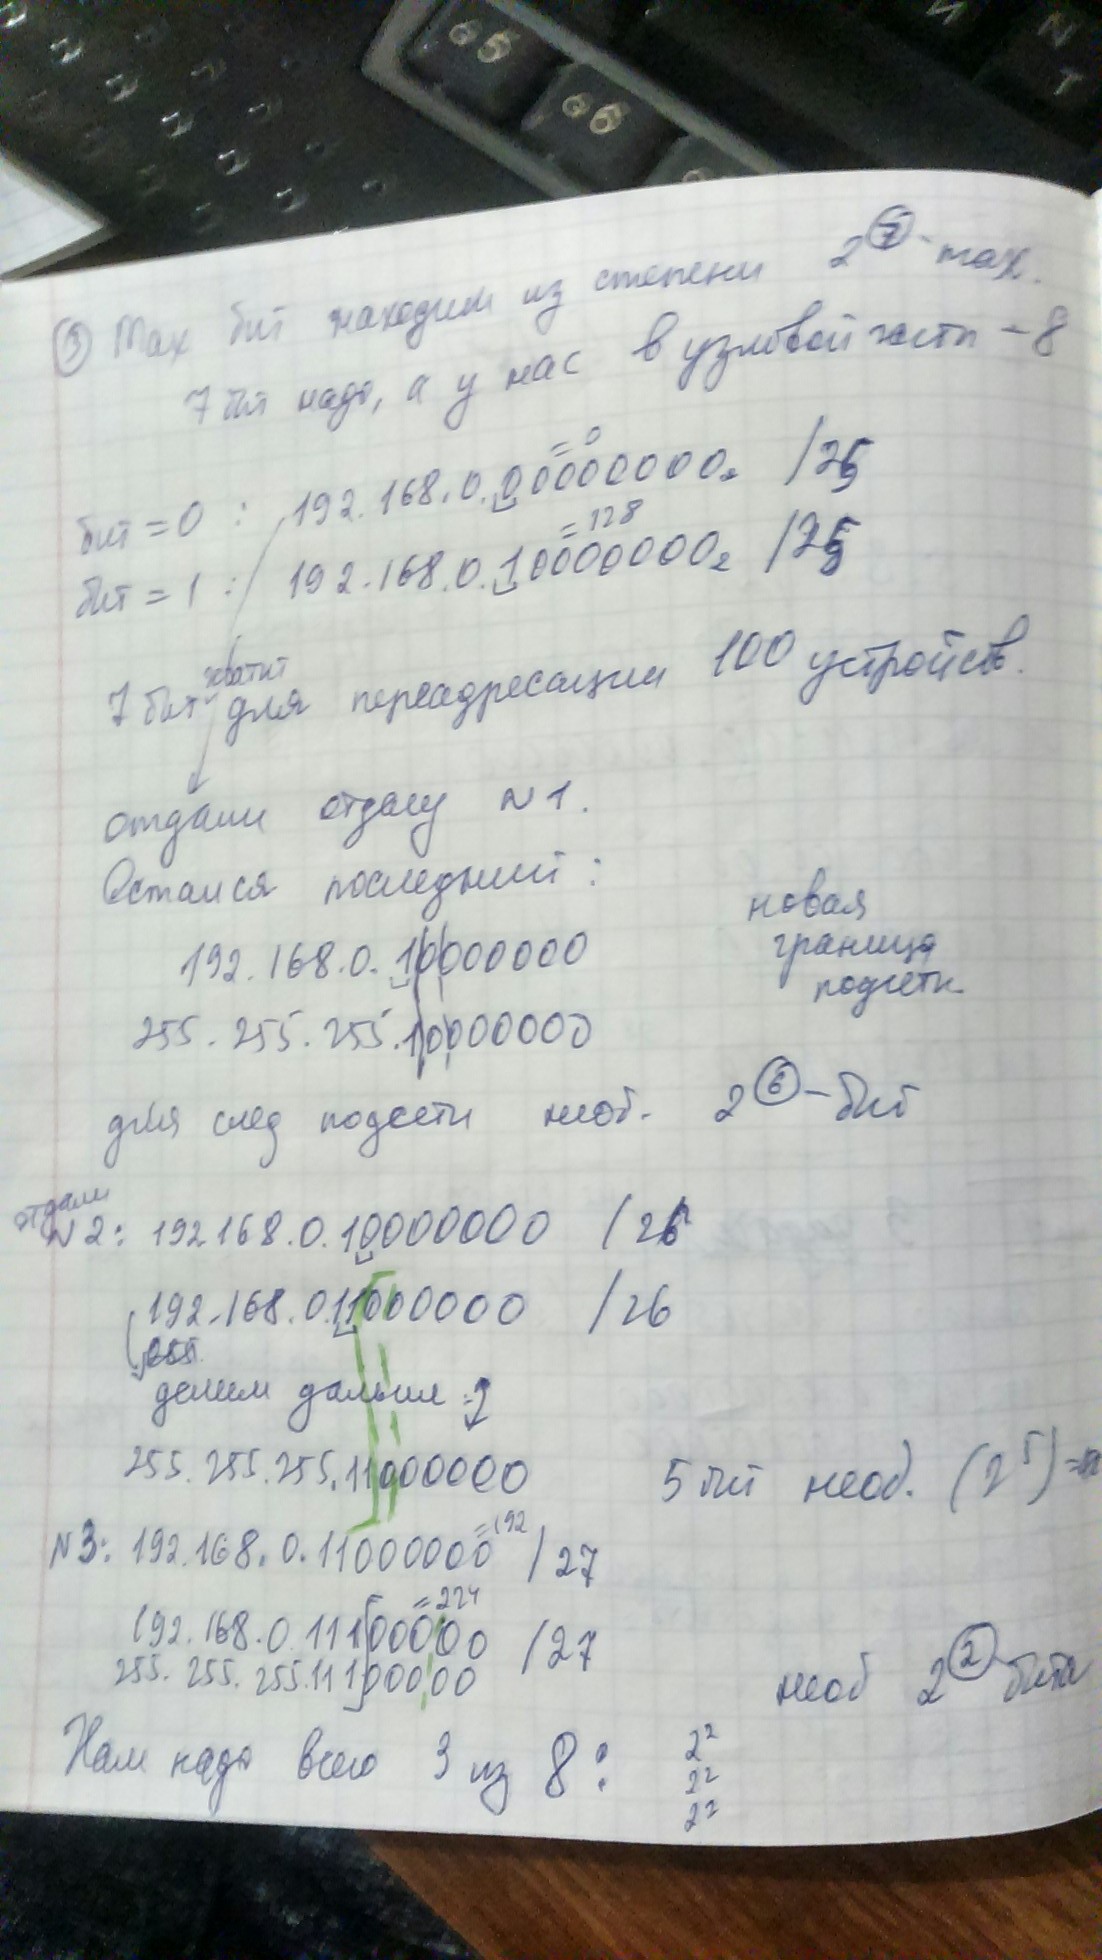 65
66
И
N
Т
③ Max бит находим из степени 2⑦ - max.
7 бит надо, а у нас в узловой части - 8
бит = 0 : 192.168.0.00000000₂ = 0 /25
бит = 1 : 192.168.0.10000000₂ = 128 /25
7 бит хватит для переадресации 100 устройств.
отдали отделу N1.
Остался последний :
192.168.0.10000000
255.255.255.10000000
новая
граница
подсети
для след подсети необ. 2⑥ - бит
отдали
N2: 192.168.0.10000000 /26
192.168.0.11000000 /26
255.
делим дальше :
255.255.255.11000000
5 бит необ. (2⁵) =
N3: 192.168.0.11000000 = 192 /27
192.168.0.11100000 = 224 /27
255.255.255.11100000
необ 2② бита
Нам надо всего 3 из 8 :
2²
2²
2²